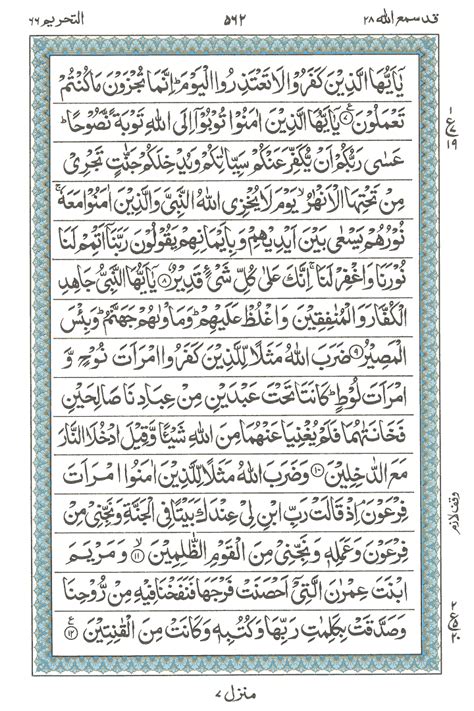 قد سمع الله ٢٨ ٥٦٢ التحريم ٦٦
يٰۤاَيُّهَا الَّذِيْنَ كَفَرُوْا لَا تَعْتَذِرُوا الْيَوْمَ ؕ اِنَّمَا تُجْزَوْنَ مَا كُنْتُمْ
تَعْمَلُوْنَ ۧ۷ يٰۤاَيُّهَا الَّذِيْنَ اٰمَنُوْا تُوْبُوْۤا اِلَى اللّٰهِ تَوْبَةً نَّصُوْحًا ؕ
عَسٰى رَبُّكُمْ اَنْ يُّكَفِّرَ عَنْكُمْ سَيِّاٰتِكُمْ وَيُدْخِلَكُمْ جَنّٰتٍ تَجْرِيْ
مِنْ تَحْتِهَا الْاَنْهٰرُ ۙ يَوْمَ لَا يُخْزِى اللّٰهُ النَّبِيَّ وَالَّذِيْنَ اٰمَنُوْا مَعَهٗ ۚ
نُوْرُهُمْ يَسْعٰى بَيْنَ اَيْدِيْهِمْ وَبِاَيْمَانِهِمْ يَقُوْلُوْنَ رَبَّنَاۤ اَتْمِمْ لَنَا
نُوْرَنَا وَاغْفِرْ لَنَا ۚ اِنَّكَ عَلٰى كُلِّ شَيْءٍ قَدِيْرٌ ۸ يٰۤاَيُّهَا النَّبِيُّ جَاهِدِ
الْكُفَّارَ وَالْمُنٰفِقِيْنَ وَاغْلُظْ عَلَيْهِمْ ؕ وَمَاْوٰىهُمْ جَهَنَّمُ ؕ وَبِئْسَ
الْمَصِيْرُ ۹ ضَرَبَ اللّٰهُ مَثَلًا لِّلَّذِيْنَ كَفَرُوا امْرَاَتَ نُوْحٍ وَّ
امْرَاَتَ لُوْطٍ ؕ كَانَتَا تَحْتَ عَبْدَيْنِ مِنْ عِبَادِنَا صَالِحَيْنِ
فَخَانَتٰهُمَا فَلَمْ يُغْنِيَا عَنْهُمَا مِنَ اللّٰهِ شَيْـًٔا وَّقِيْلَ ادْخُلَا النَّارَ
مَعَ الدّٰخِلِيْنَ ۱۰ وَضَرَبَ اللّٰهُ مَثَلًا لِّلَّذِيْنَ اٰمَنُوا امْرَاَتَ
فِرْعَوْنَ ۘ اِذْ قَالَتْ رَبِّ ابْنِ لِيْ عِنْدَكَ بَيْتًا فِى الْجَنَّةِ وَنَجِّنِيْ مِنْ
فِرْعَوْنَ وَعَمَلِهٖ وَنَجِّنِيْ مِنَ الْقَوْمِ الظّٰلِمِيْنَ ۙ۱۱ وَمَرْيَمَ
ابْنَتَ عِمْرٰنَ الَّتِيْۤ اَحْصَنَتْ فَرْجَهَا فَنَفَخْنَا فِيْهِ مِنْ رُّوْحِنَا
وَصَدَّقَتْ بِكَلِمٰتِ رَبِّهَا وَكُتُبِهٖ وَكَانَتْ مِنَ الْقٰنِتِيْنَ ۧ۱۲
١
ع
١٩
وقف لازم
٢
ع
٢٠
منزل ٧